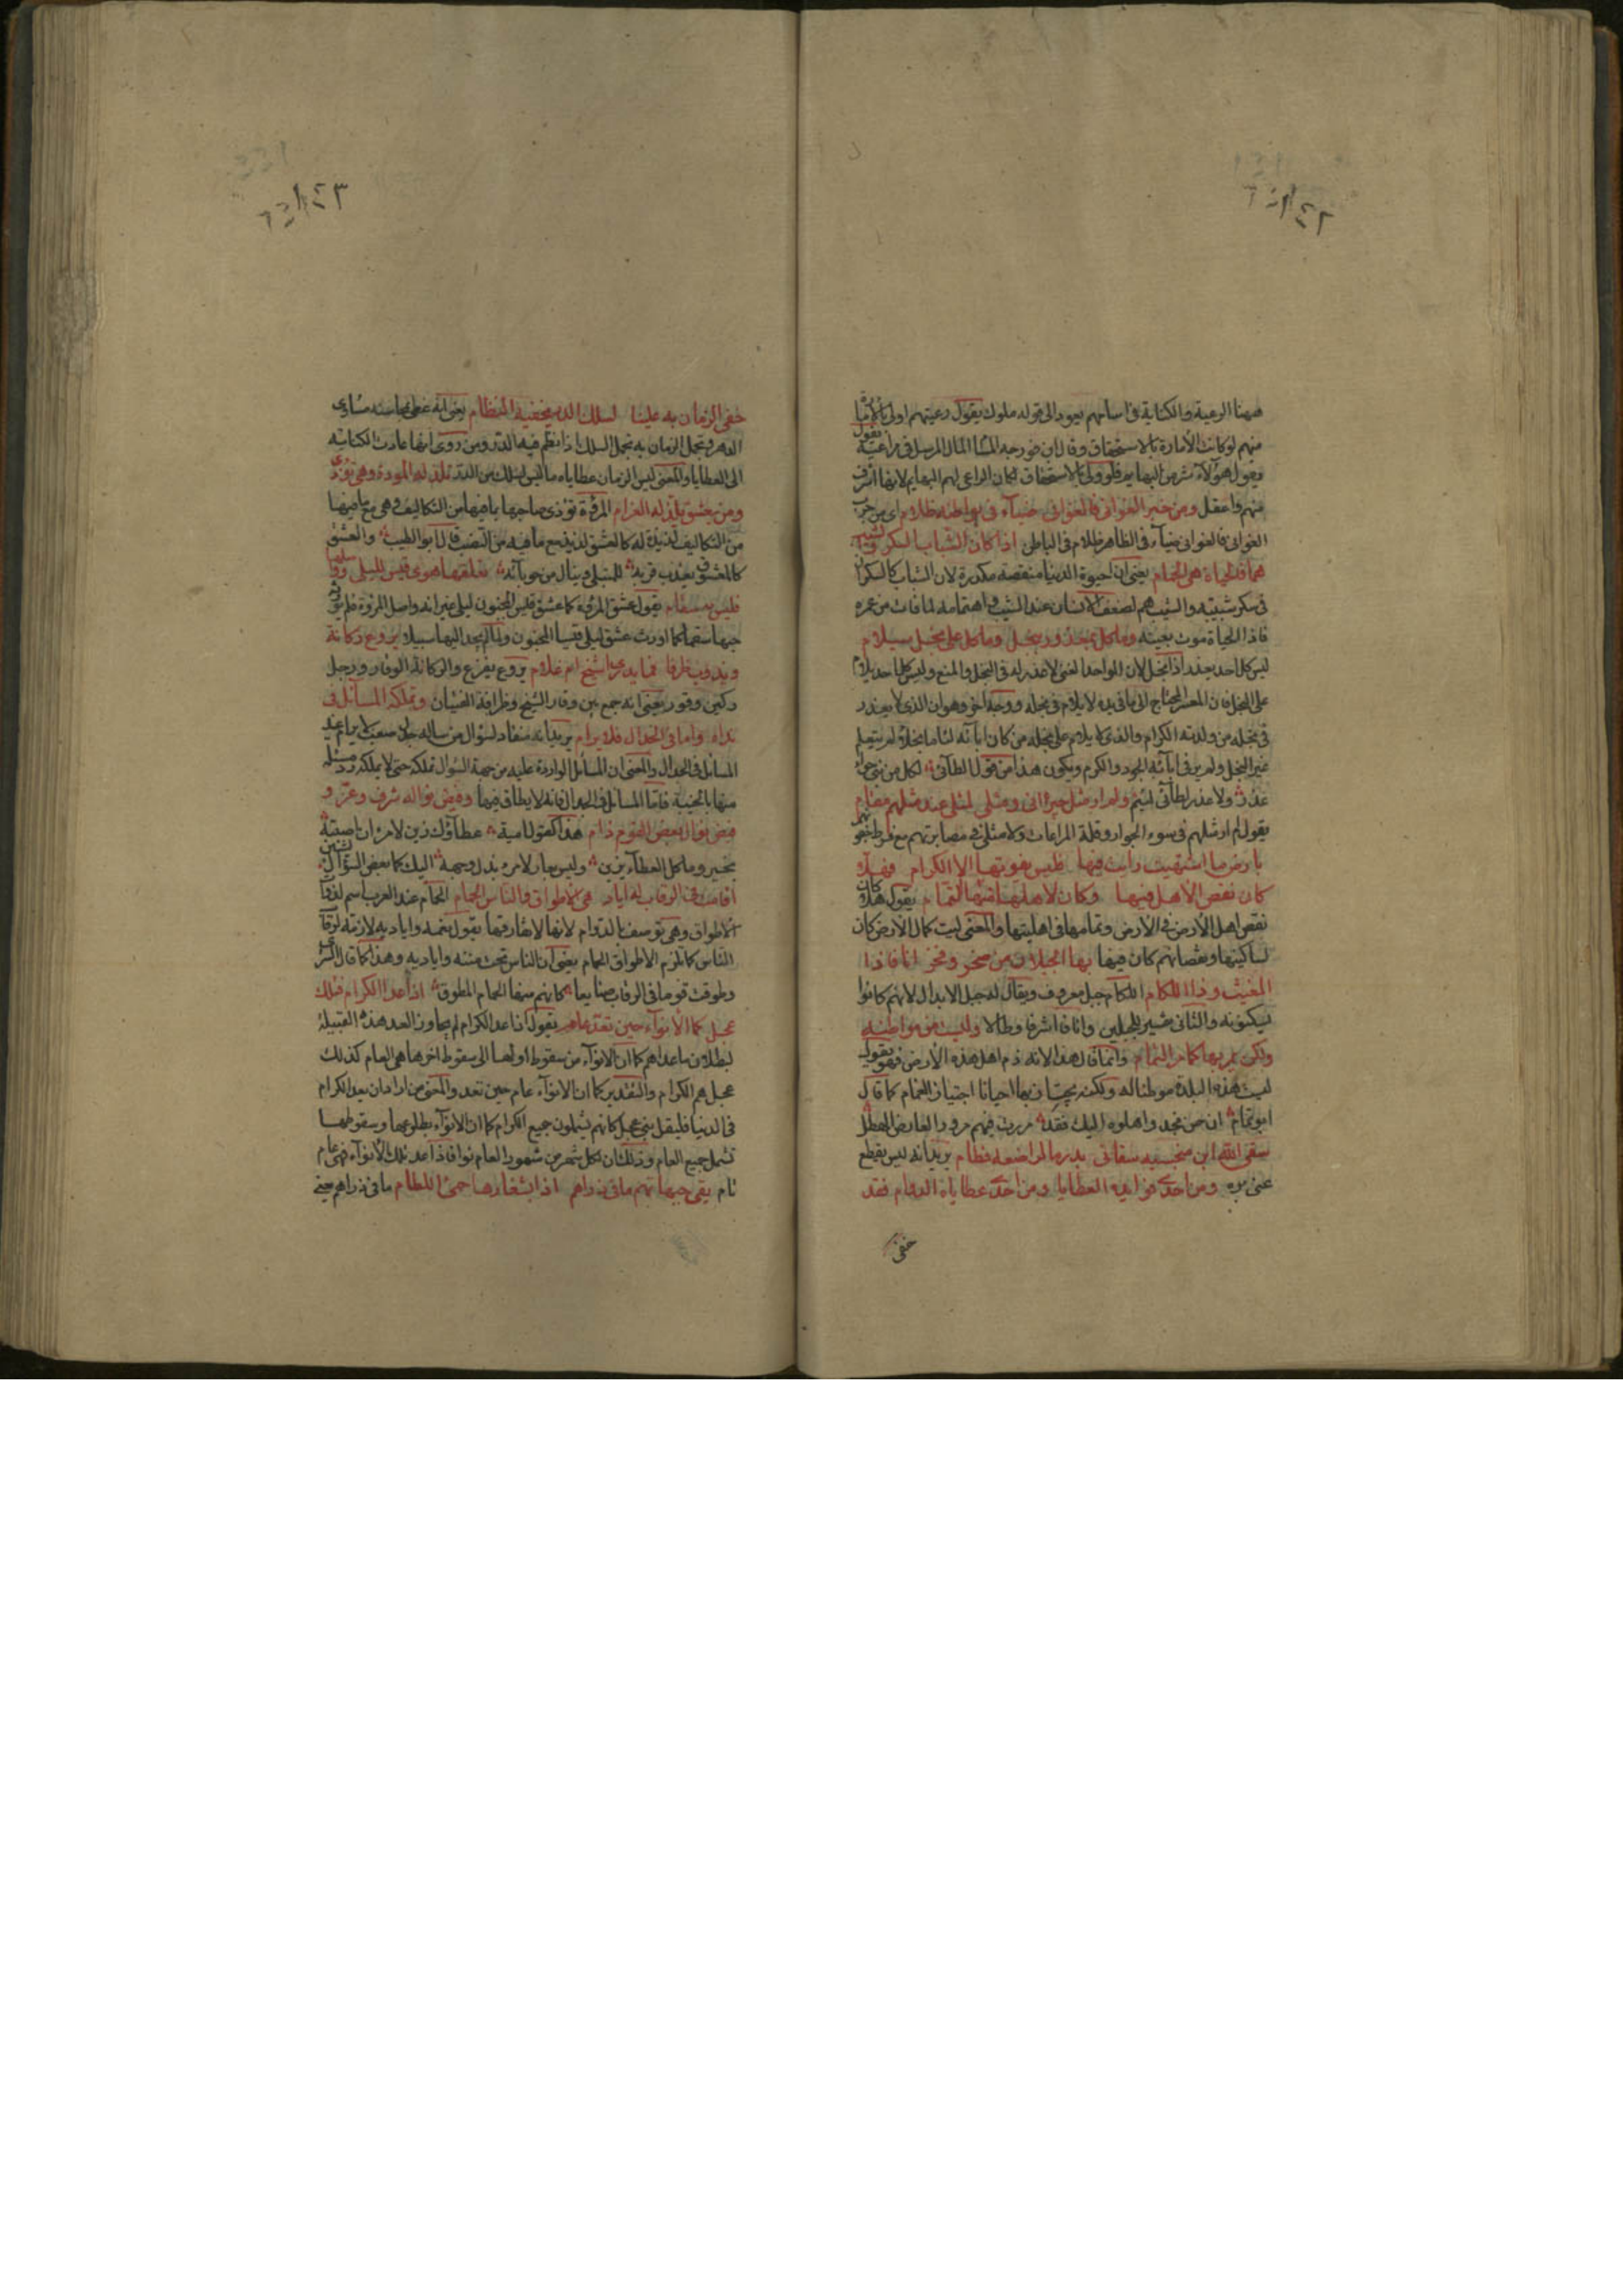 ههنا الرعية والكناية في اسامهم يعود الى قوله ملوك يقول رعيتهم اولى بالامارة
منهم لو كانت الامارة بالاستحقاق وقال ابن فورجه المال المرسل في مراعيه يقول
هؤلاء شر من البهايم فلو ولى بالاستحقاق لكان الراعي لهم البهايم لانها اشرف
منهم واعقل ومن خبر الغواني فالغواني ضيآء في بواطنه ظلام اي من جرب
الغواني فالغواني ضيآء في الظاهر ظلام في الباطن اذا كان الشباب السكر والشيب
هما فالحياة هي الحمام يعني ان الحيوة الدنيا منغصة مكدرة لان الشاب كالسكران
في سكر شبيبته والشيب هم لضعف الانسان عند الشيب واهتمامه لما فات من عمره
فاذا الحياة موت بعينه وما كل بمعذور ببخل وما كل على بخل يلام
ليس كل احد يعذر اذا بخل لان الواحد الغني لا عذر له في البخل والمنع وليس كل احد يلام
على البخل فان المعسر المحتاج الى ما في يده لا يلام في بخله ووجه اخر وهو ان الذي لا يعذر
في بخله من ولدته الكرام والذي لا يلام على بخله من كان ابآئه لئاما بخلاء لم يتعلم
غير البخل ولم ير في ابآئه الجود والكرم ويكون هذا من قول الطآئي لكل من بني حوآء
عذر ولا عذر لطآئي لئيم ولم ار مثل جيراني ومثلي لمثلي عند مثلهم مقام
يقول لم ار مثلهم في سوء الجوار وقلة المراعات ولا مثلي في مصابرتهم مع فرط جفوتهم
بارض ما اشتهيت رايت فيها فليس يفوتها الا الكرام فهلا
كان نقص الاهل فيها وكان لاهلها منها التمام يقول هلا كان
نقص اهل الارض في الارض وتمامها في اهليتها والمعنى ليت كمال الارض كان
لساكنيها ونقصانهم كان فيها بها الجبلان من صخر وفخر انافا ذا
المغيث وذا اللكام اللكام جبل معروف ويقال له جبل الابدال لانهم كانوا
يسكنونه والثاني مشير للجبلين وانافا اشرفا وطالا وليست من مواطنه
ولكن يمر بها كما مر الغمام وانما قال هذا لانه ذم اهل هذه الارض فهو يقول
ليست هذه البلدة موطنا له ولكنه يجتاز بها احيانا اجتياز الغمام كما قال
ابو تمام ان حن نجد واهلوه اليك فقد مررت فيهم مرور العارض الهطل
سقى الله ابن منجبة سقاني بدر ما لراضعه فطام يريد انه ليس يقطع
عني بره ومن احدى فوايده العطايا ومن احدى عطاياه الدوام فقد
خفي
خفي الزمان به علينا لسلك الدر يخفيه النظام يعني انه غطى بمحاسنه مساوي
الدهر وتجمل الزمان به تجمل السلك اذا نظم فيه الدر ومن روى بها عادت الكناية
الى العطايا والمعنى لبس الزمان عطاياه ما لبس السلك من الدر تلذ له المروة وهي تؤذي
ومن يعشق يلذ له الغرام المروة تؤذي صاحبها بما فيها من التكاليف وهي مع ما فيها
من التكاليف لذيذة له كالعشق لذيذ مع ما فيه من النصب قال ابو الطيب والعشق
كالمعشوق يعذب قربه للمبتلى وينال من حوبآئه تعلقها هوى قيس لليلى وواصلها
فليس به سقام يقول عشق المروة كما عشق قيس المجنون ليلى غير انه واصل المروة فلم يورثه
حبها سقما كما اورث عشق ليلى قيسا المجنون ولم يجد اليها سبيلا يروع ركانة
ويذوب ظرفا فما يدرى اشيخ ام غلام يروع يفزع والركانة الوقار ورجل
ركين وقور يعني انه جمع بين وقار الشيخ وظرافة الفتيان وتملكه المسآئل في
نداه واما في الجدال فلا يرام يريد انه منقاد لسؤال من ساله جدل صعب لا يرام عند
المسائل في الجدال والمعنى ان المسائل الواردة عليه من جهة السؤال تملكه حتى لا يملك رد مسئلة
منها بالخيبة فاما المسائل في الجدال فانه لا يطاق فيها وقبض نواله شرف وعز و
قبض نوال بعض القوم ذام هذا كقول امية عطآؤك زين لامرئ ان اصبته
بخير وما كل العطآء يزين وليس بعار لامرء بذل وجهه اليك كما بعض السؤال يشين
اقامت في الرقاب له اياد هي الاطواق والناس الحمام الحمام عند العرب اسم لذوات
الاطواق وهي توصف بالدوام لانها لا تفارقها يقول نعمه واياديه لازمة لرقاب
الناس كما تلزم الاطواق الحمام يعني ان الناس تحت مننه واياديه وهذا كما قال السري
وطوقت قوما في الرقاب صنايعا كانهم منها الحمام المطوق اذا عد الكرام فتلك
عجل كما الانوآء حين تعد عام يقول اذا عد الكرام لم يجاوز العد هذه القبيلة
لبطلان ما عداهم كما ان الانوآء من سقوط اولها الى سقوط اخرها هي العام كذلك
عجل هم الكرام والتقدير كما ان الانوآء عام حين تعد والمعنى من اراد ان يعد الكرام
في الدنيا فليقل بني عجل كانهم يشملون جميع الكرام كما ان الانوآء بطلوعها وسقوطها
تشمل جميع العام وذلك ان لكل شهر من شهور العام نوا فاذا عد تلك الانوآء فهي عام
تام يقي جبهاتهم ما في ذراهم اذا بشفارها حمي اللطام ما في ذراهم يعني